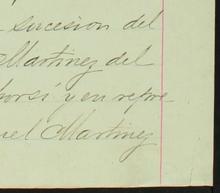 sucesion del
Martinez del
por sí y en repre
uel Martinez